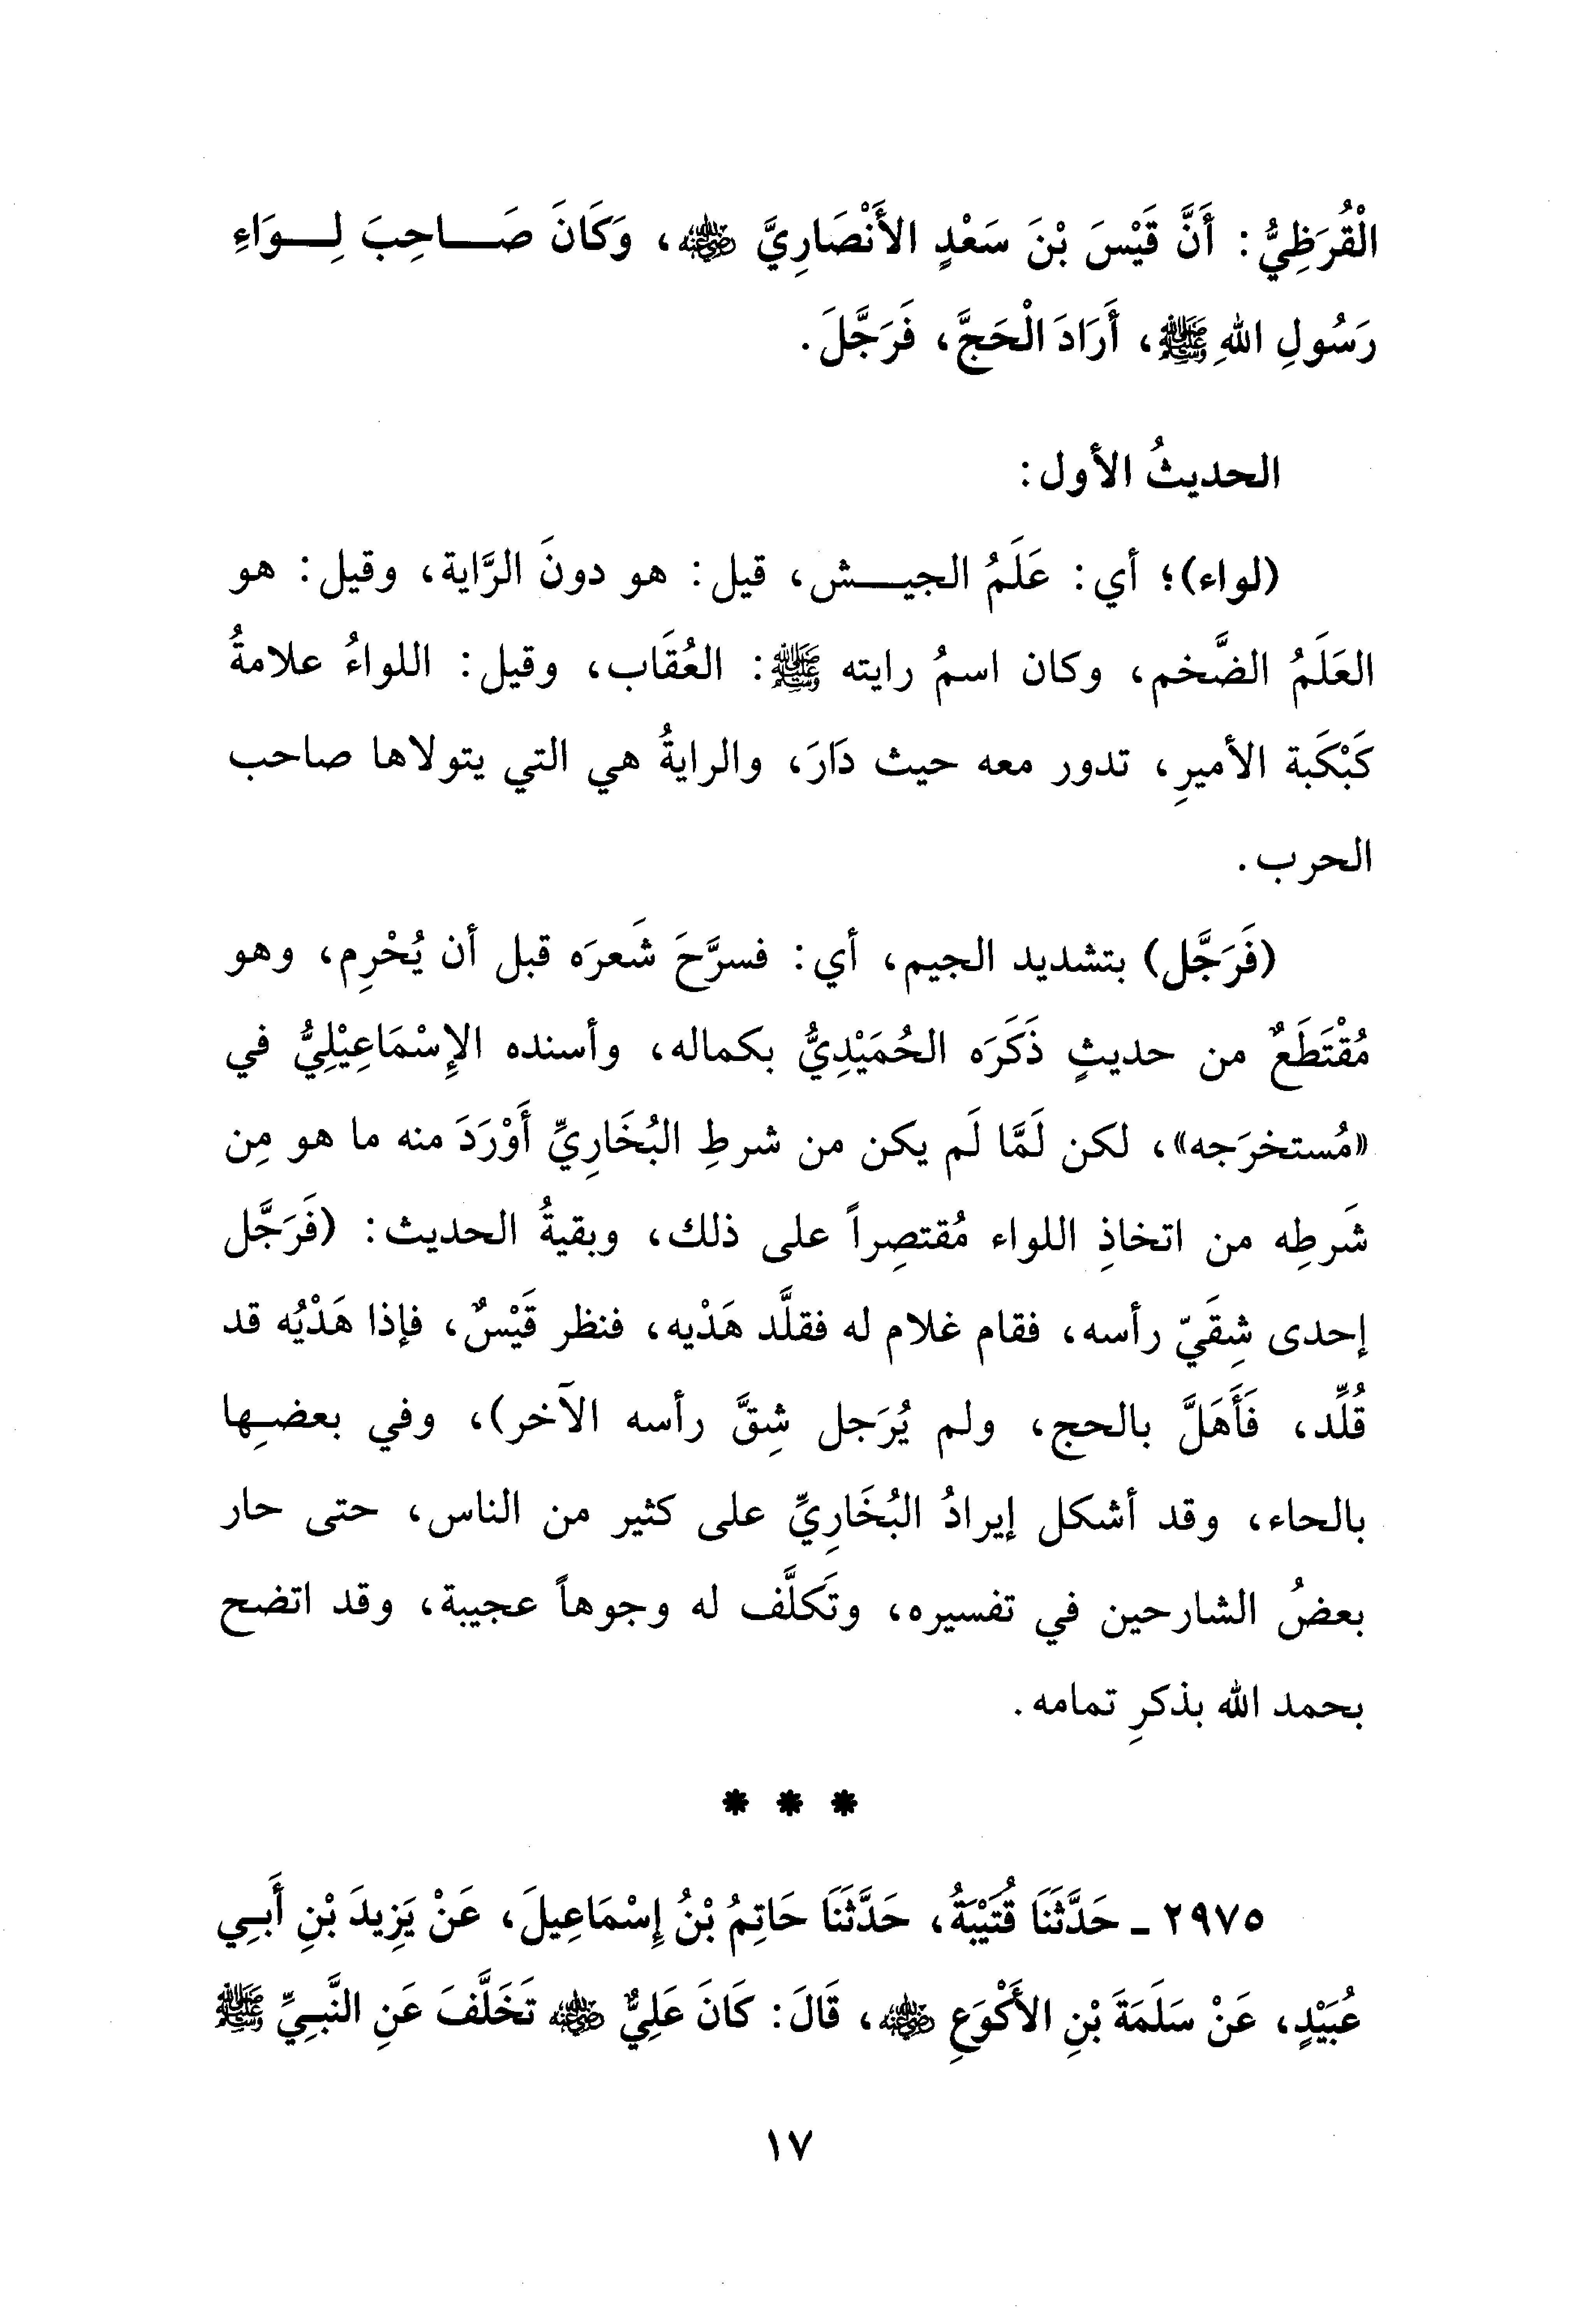 الْقُرَظِيُّ: أَنَّ قَيْسَ بْنَ سَعْدٍ الأَنْصَارِيَّ رضي الله عنه، وَكَانَ صَاحِبَ لِوَاءِ
رَسُولِ اللهِ ﷺ، أَرَادَ الْحَجَّ، فَرَجَّلَ.
الحديثُ الأول:
(لواء)؛ أي: عَلَمُ الجيش، قيل: هو دونَ الرَّاية، وقيل: هو
العَلَمُ الضَّخم، وكان اسمُ رايته ﷺ: العُقَاب، وقيل: اللواءُ علامةُ
كَبْكَبة الأميرِ، تدور معه حيث دَارَ، والرايةُ هي التي يتولاها صاحب
الحرب.
(فَرَجَّل) بتشديد الجيم، أي: فسرَّحَ شَعرَه قبل أن يُحْرِم، وهو
مُقْتَطَعٌ من حديثٍ ذَكَرَه الحُمَيْدِيُّ بكماله، وأسنده الإِسْمَاعِيْلِيُّ في
«مُستخرَجه»، لكن لَمَّا لَم يكن من شرطِ البُخَارِيِّ أَوْرَدَ منه ما هو مِن
شَرطِه من اتخاذِ اللواء مُقتصِراً على ذلك، وبقيةُ الحديث: (فَرَجَّل
إحدى شِقَيّ رأسه، فقام غلام له فقلَّد هَدْيه، فنظر قَيْسٌ، فإذا هَدْيُه قد
قُلِّد، فَأَهَلَّ بالحج، ولم يُرَجل شِقَّ رأسه الآخر)، وفي بعضِها
بالحاء، وقد أشكل إيرادُ البُخَارِيِّ على كثير من الناس، حتى حار
بعضُ الشارحين في تفسيره، وتَكلَّف له وجوهاً عجيبة، وقد اتضح
بحمد الله بذكرِ تمامه.
* * *
٢٩٧٥ - حَدَّثَنَا قُتَيْبَةُ، حَدَّثَنَا حَاتِمُ بْنُ إِسْمَاعِيلَ، عَنْ يَزِيدَ بْنِ أَبِي
عُبَيْدٍ، عَنْ سَلَمَةَ بْنِ الأَكْوَعِ رضي الله عنه، قَالَ: كَانَ عَلِيٌّ رضي الله عنه تَخَلَّفَ عَنِ النَّبِيِّ ﷺ
١٧